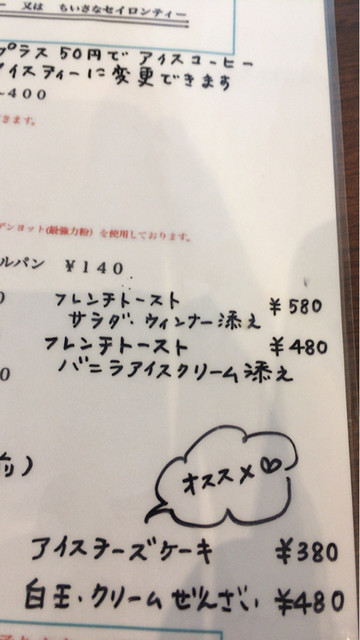 又は ちいさなセイロンティー
プラス50円で アイスコーヒー
アイスティーに変更できます
~400
きます。
デンヨット(最強力粉)を使用しております。
ルパン ￥140
フレンチトースト ￥580
サラダ・ウィンナー添え
フレンチトースト ￥480
バニラアイスクリーム添え
オススメ♡
アイスチーズケーキ ￥380
白玉・クリームぜんざい ￥480